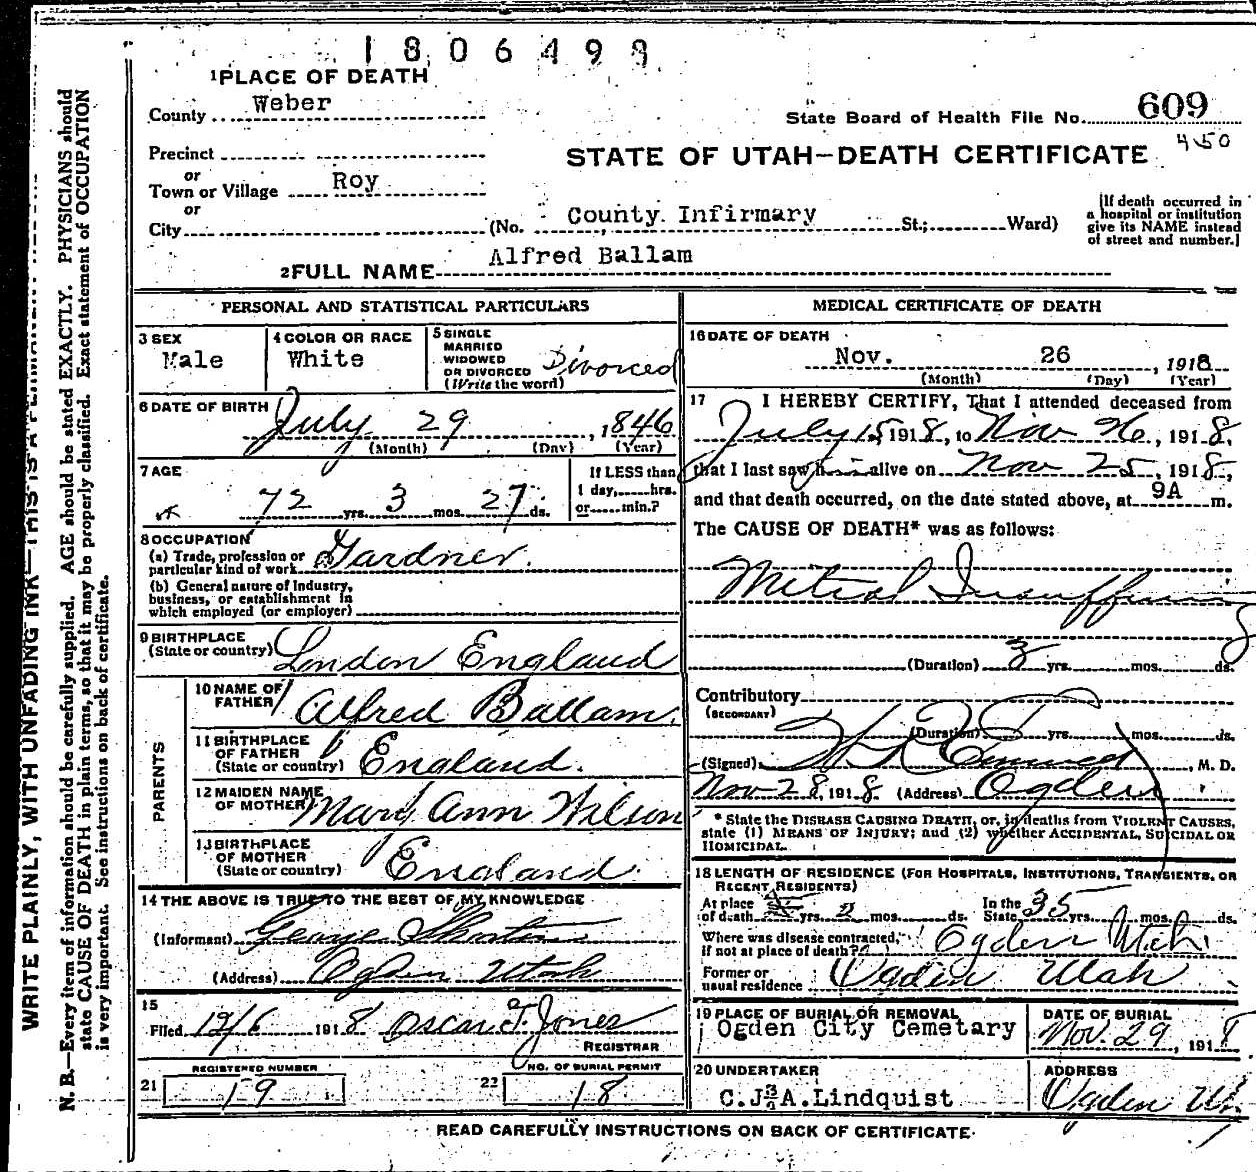 1806498
1 PLACE OF DEATH
County Weber
State Board of Health File No. 609
450
Precinct
or
Town or Village Roy
or
City
STATE OF UTAH—DEATH CERTIFICATE
(No. County. Infirmary St.; Ward)
[If death occurred in
a hospital or institution
give its NAME instead
of street and number.]
2 FULL NAME Alfred Ballam
PERSONAL AND STATISTICAL PARTICULARS
3 SEX
Male
4 COLOR OR RACE
White
5 SINGLE
MARRIED
WIDOWED
OR DIVORCED
(Write the word)
Divorced
6 DATE OF BIRTH
July 29, 1846
(Month) (Day) (Year)
7 AGE
72 yrs. 3 mos. 27 ds.
If LESS than
1 day, hrs.
or min.?
8 OCCUPATION
(a) Trade, profession or
particular kind of work Gardner.
(b) General nature of Industry,
business, or establishment in
which employed (or employer)
9 BIRTHPLACE
(State or country) London England
PARENTS
10 NAME OF
FATHER Alfred Ballam.
11 BIRTHPLACE
OF FATHER
(State or country) England.
12 MAIDEN NAME
OF MOTHER Mary Ann Wilson
13 BIRTHPLACE
OF MOTHER
(State or country) England.
14 THE ABOVE IS TRUE TO THE BEST OF MY KNOWLEDGE
(Informant) George
(Address) Ogden Utah
15
Filed 12/6 1918 Oscar T. Jones
REGISTRAR
REGISTERED NUMBER
21 19
NO. OF BURIAL PERMIT
22 18
MEDICAL CERTIFICATE OF DEATH
16 DATE OF DEATH
Nov. 26, 1918
(Month) (Day) (Year)
17 I HEREBY CERTIFY, That I attended deceased from
July 15 1918, to Nov 26, 1918,
that I last saw him alive on Nov 25, 1918,
and that death occurred, on the date stated above, at 9A m.
The CAUSE OF DEATH* was as follows:
Mitral Insufficiency
(Duration) 3 yrs. mos. ds.
Contributory
(SECONDARY)
(Duration) yrs. mos. ds.
(Signed) , M. D.
Nov 28, 1918 (Address) Ogden
* State the DISEASE CAUSING DEATH, or, in deaths from VIOLENT CAUSES,
state (1) MEANS OF INJURY; and (2) whether ACCIDENTAL, SUICIDAL OR
HOMICIDAL.
18 LENGTH OF RESIDENCE (FOR HOSPITALS, INSTITUTIONS, TRANSIENTS, OR
RECENT RESIDENTS)
At place
of death yrs. 2 mos. ds.
In the
State 35 yrs. mos. ds.
Where was disease contracted,
if not at place of death? Ogden Utah.
Former or
usual residence Ogden Utah
19 PLACE OF BURIAL OR REMOVAL
Ogden City Cemetary
DATE OF BURIAL
Nov. 29, 1918
20 UNDERTAKER
C.J.&A.Lindquist
ADDRESS
Ogden Ut.
READ CAREFULLY INSTRUCTIONS ON BACK OF CERTIFICATE.
WRITE PLAINLY, WITH UNFADING INK—THIS IS A PERMANENT
N. B.—Every item of information should be carefully supplied. AGE should be stated EXACTLY. PHYSICIANS should
state CAUSE OF DEATH in plain terms, so that it may be properly classified. Exact statement of OCCUPATION
is very important. See instructions on back of certificate.